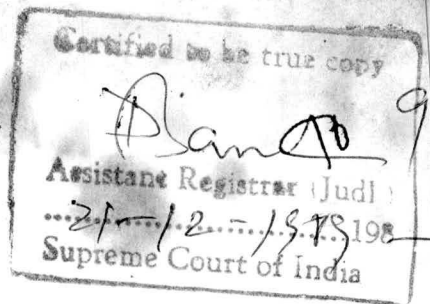 Certified to be true copy
Assistant Registrar (Judl)
21-12-19 198
Supreme Court of India